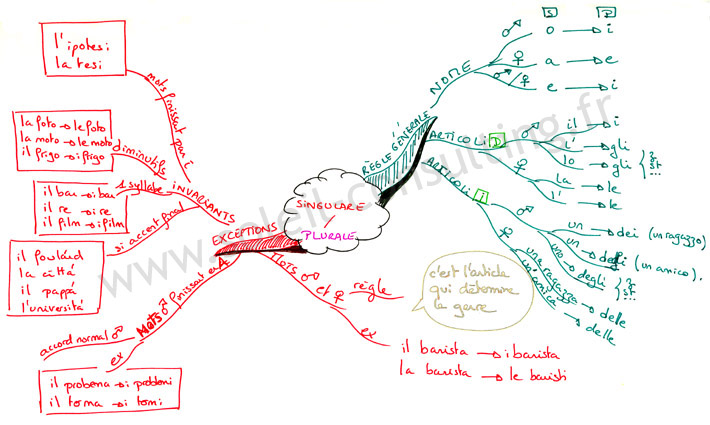 SINGULARE
/
PLURALE
RÈGLE GÉNÉRALE
NOME
S P
♂ o → i
♀ a → e
♂/♀ e → i
ARTICOLI D
♂ il → i
l' → gli
lo → gli { z st ...
♀ la → le
l' → le
ARTICOLI I
♂ un → dei (un ragazzo)
un → degli (un amico).
uno → degli { z st...
♀ una ragazza → delle
un'amica → delle
EXCEPTIONS
INVARIANTS
mots finissant par i
l'ipotesi
la tesi
diminutifs
la foto → le foto
la moto → le moto
il frigo → i frigo
1 syllabe
il bar → i bar
il re → i re
il film → i film
si accent final
il foulard
la città
il pappà
l'università
MOTS ♂ finissant en A
accord normal ♂
ex
il problema → i problemi
il tema → i temi
MOTS ♂ et ♀
règle
c'est l'article
qui détermine
le genre
ex
il barista → i baristi
la barista → le bariste
www.soleil-consulting.fr